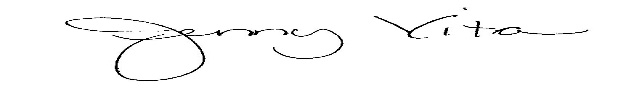 Jenny Vita